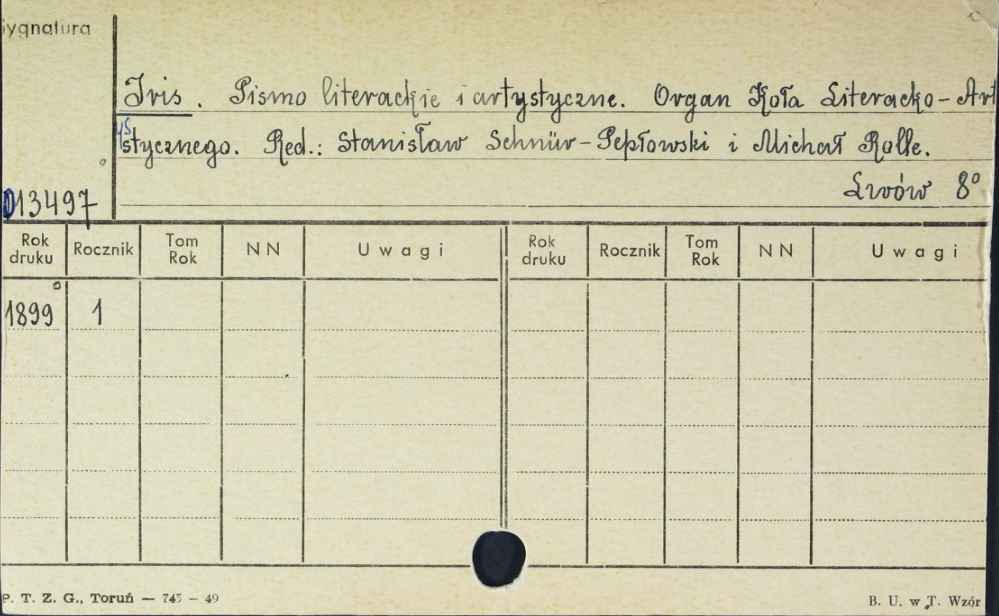 Sygnatura
Iris. Pismo literackie i artystyczne. Organ Koła Literacko-Art
ystycznego. Red.: Stanisław Schnür-Pepłowski i Michał Rolle.
013497
Lwów 8°
Rok druku Rocznik Tom Rok NN Uwagi Rok druku Rocznik Tom Rok NN Uwagi
1899 1
P. T. Z. G., Toruń — 745 — 49
B. U. w T. Wzór